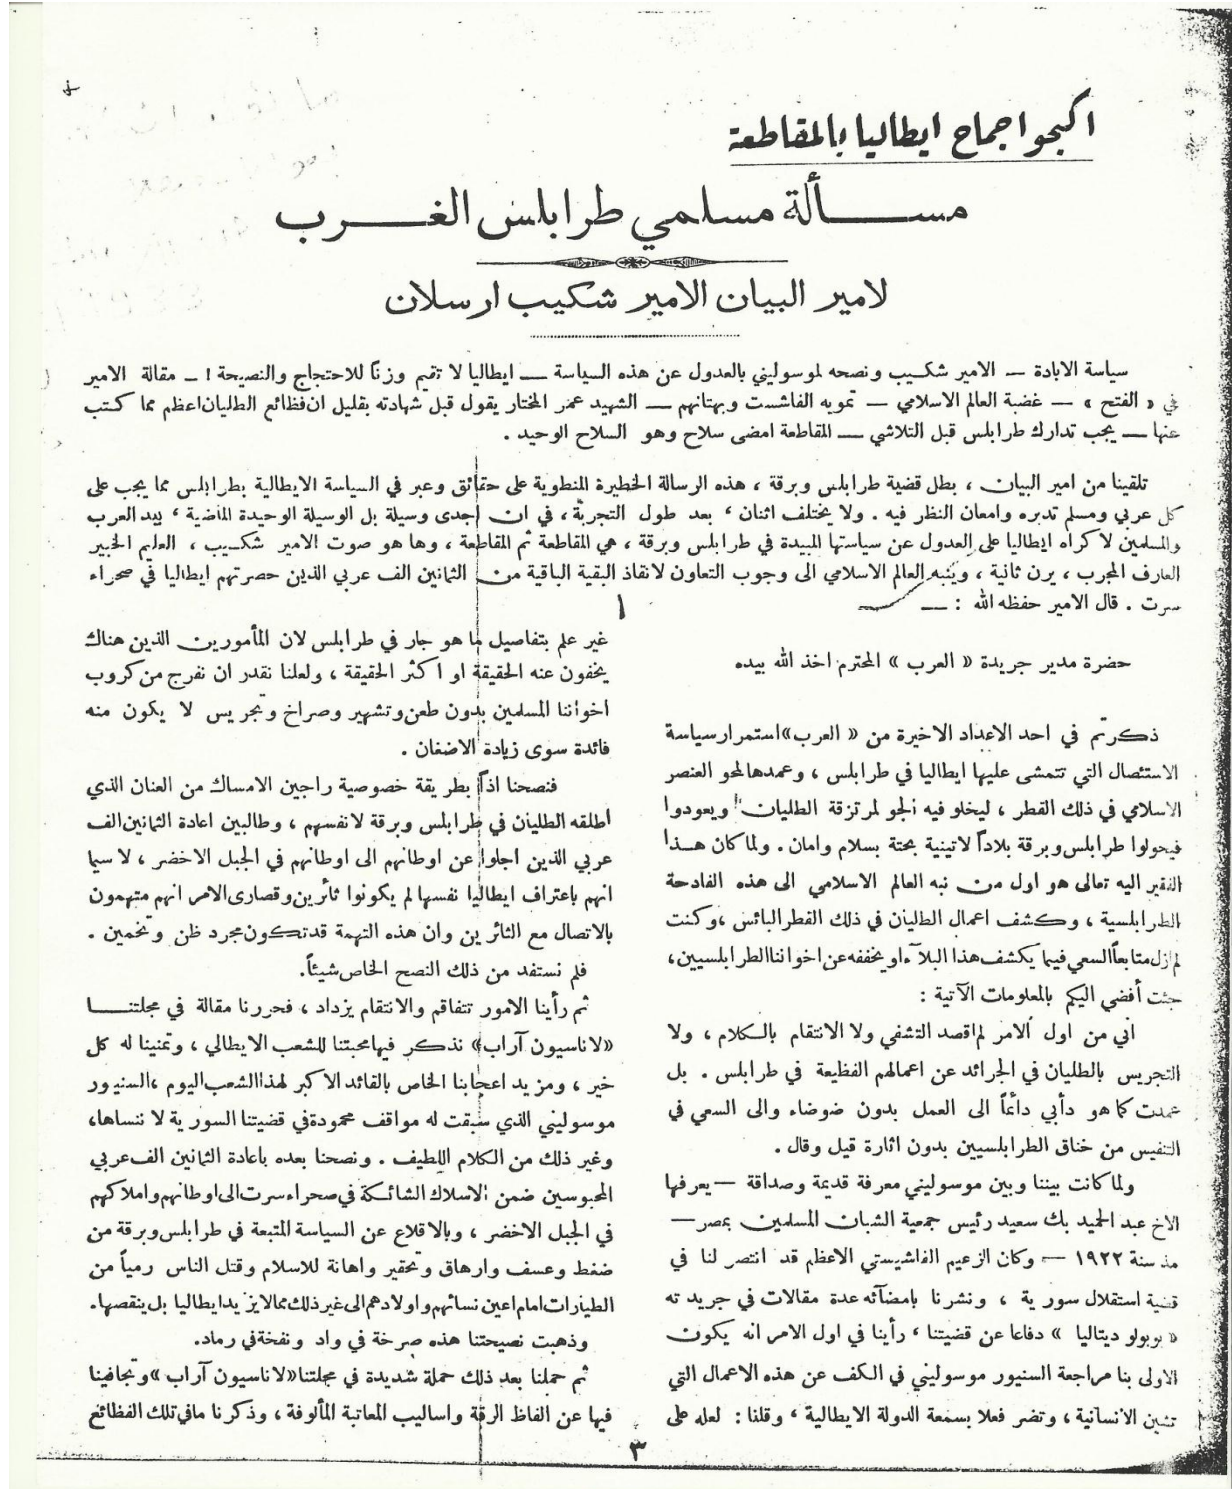 اكبحوا جماح ايطاليا بالمقاطعة
مســألة مسلمي طرابلس الغــرب
لامير البيان الامير شكيب ارسلان
سياسة الابادة — الامير شكيب ونصحه لموسوليني بالعدول عن هذه السياسة — ايطاليا لا تقيم وزناً للاحتجاج والنصيحة ! — مقالة الامير
في « الفتح » — غضبة العالم الاسلامي — تمويه الفاشست وبهتانهم — الشهيد عمر المختار يقول قبل شهادته بقليل ان فظائع الطليان اعظم مما كتب
عنها — يجب تدارك طرابلس قبل التلاشي — المقاطعة امضى سلاح وهو السلاح الوحيد .
تلقينا من امير البيان ، بطل قضية طرابلس وبرقة ، هذه الرسالة الخطيرة المنطوية على حقائق وعبر في السياسة الايطالية بطرابلس مما يجب على
كل عربي ومسلم تدبره وامعان النظر فيه . ولا يختلف اثنان ، بعد طول التجربة ، في ان اجدى وسيلة بل الوسيلة الوحيدة الماضية ، بيد العرب
والمسلمين لاكراه ايطاليا على العدول عن سياستها المبيدة في طرابلس وبرقة ، هي المقاطعة ثم المقاطعة ، وها هو صوت الامير شكيب ، العليم الخبير
العارف المجرب ، يرن ثانية ، وينبه العالم الاسلامي الى وجوب التعاون لانقاذ البقية الباقية من الثمانين الف عربي الذين حصرتهم ايطاليا في صحراء
سرت . قال الامير حفظه الله : —
حضرة مدير جريدة « العرب » المحترم اخذ الله بيده
ذكرتم في احد الاعداد الاخيرة من « العرب » استمرار سياسة
الاستئصال التي تتمشى عليها ايطاليا في طرابلس ، وعمدها لمحو العنصر
الاسلامي في ذلك القطر ، ليخلو فيه الجو لمرتزقة الطليان ويعودوا
فيحولوا طرابلس وبرقة بلاداً لاتينية بحتة بسلام وامان . ولما كان هـذا
الفقير اليه تعالى هو اول من نبه العالم الاسلامي الى هذه الفادحة
الطرابلسية ، وكشف اعمال الطليان في ذلك القطر البائس ، وكنت
لم ازل متابعاً السعي فيما يكشف هذا البلاء او يخففه عن اخواننا الطرابلسيين ،
جئت أفضي اليكم بالمعلومات الآتية :
اني من اول الامر لم اقصد التشفي ولا الانتقام بالكلام ، ولا
التجريس بالطليان في الجرائد عن اعمالهم الفظيعة في طرابلس . بل
عمدت كما هو دأبي دائماً الى العمل بدون ضوضاء والى السعي في
التنفيس من خناق الطرابلسيين بدون اثارة قيل وقال .
ولما كانت بيننا وبين موسوليني معرفة قديمة وصداقة — يعرفها
الاخ عبد الحميد بك سعيد رئيس جمعية الشبان المسلمين بمصر —
مذ سنة ١٩٢٢ — وكان الزعيم الفاشيستي الاعظم قد انتصر لنا في
قضية استقلال سورية ، ونشرنا بامضائه عدة مقالات في جريدته
« بوبولو ديتاليا » دفاعا عن قضيتنا ، رأينا في اول الامر انه يكون
الاولى بنا مراجعة السنيور موسوليني في الكف عن هذه الاعمال التي
تشين الانسانية ، وتضر فعلا بسمعة الدولة الايطالية ، وقلنا : لعله على
غير علم بتفاصيل ما هو جار في طرابلس لان المأمورين الذين هناك
يخفون عنه الحقيقة او اكثر الحقيقة ، ولعلنا نقدر ان نفرج من كروب
اخواننا المسلمين بدون طعن وتشهير وصراخ وتجريس لا يكون منه
فائدة سوى زيادة الاضغان .
فنصحنا اذاً بطريقة خصوصية راجين الامساك من العنان الذي
أطلقه الطليان في طرابلس وبرقة لانفسهم ، وطالبين اعادة الثمانين الف
عربي الذين اجلوا عن اوطانهم الى اوطانهم في الجبل الاخضر ، لا سيما
انهم باعتراف ايطاليا نفسها لم يكونوا ثائرين وقصارى الامر انهم متهمون
بالاتصال مع الثائرين وان هذه التهمة قد تكون مجرد ظن وتخمين .
فلم نستفد من ذلك النصح الخاص شيئاً .
ثم رأينا الامور تتفاقم والانتقام يزداد ، فحررنا مقالة في مجلتنــا
«لاناسيون آراب» نذكر فيها محبتنا للشعب الايطالي ، وتمنينا له كل
خير ، ومزيد اعجابنا الخاص بالقائد الاكبر لهذا الشعب اليوم ، السنيور
موسوليني الذي سبقت له مواقف محمودة في قضيتنا السورية لا ننساها ،
وغير ذلك من الكلام اللطيف . ونصحنا بعده باعادة الثمانين الف عربي
المحبوسين ضمن الاسلاك الشائكة في صحراء سرت الى اوطانهم واملاكهم
في الجبل الاخضر ، وبالاقلاع عن السياسة المتبعة في طرابلس وبرقة من
ضغط وعسف وارهاق وتحقير واهانة للاسلام وقتل الناس رمياً من
الطيارات امام اعين نسائهم واولادهم الى غير ذلك مما لا يزيد ايطاليا بل ينقصها .
وذهبت نصيحتنا هذه صرخة في واد ونفخة في رماد .
ثم حملنا بعد ذلك حملة شديدة في مجلتنا «لاناسيون آراب» وتجافينا
فيها عن الفاظ الرقة واساليب المعاتبة المألوفة ، وذكرنا ما في تلك الفظائع
٣